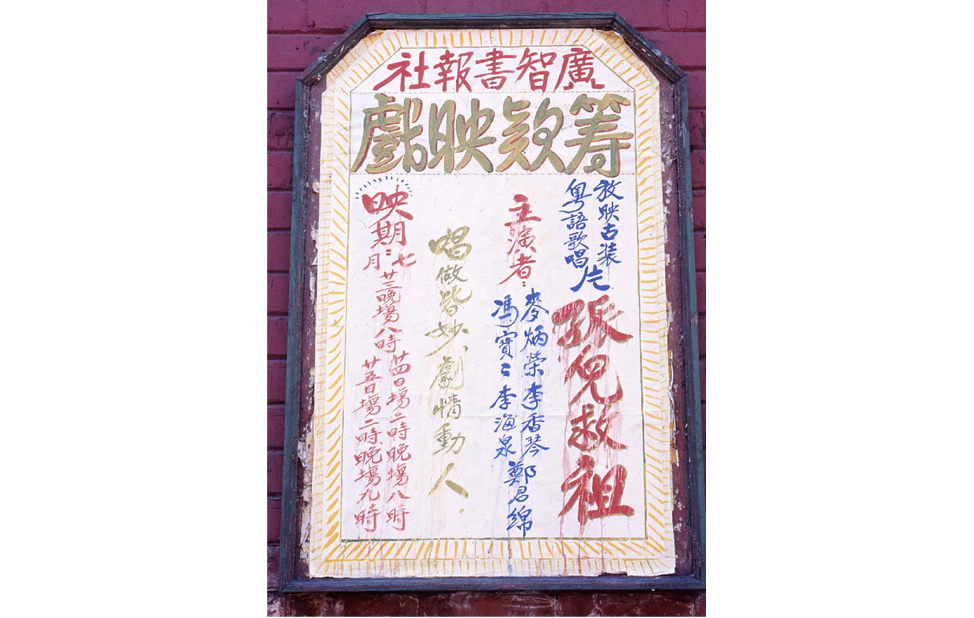 廣智書報社
籌欵映戲
放映古装
粤語歌唱片
孤兒救祖
主演者：
麥炳榮 李香琴 鄭君綿
馮寶〻 李海泉
唱做皆妙、劇情動人．
映期：七月
廿三晚場八時
廿四日場二時晚場八時
廿五日場二時晚場九時